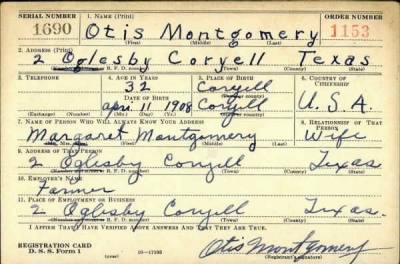 SERIAL NUMBER 1. NAME (Print) ORDER NUMBER
1690 Otis Montgomery 1153
(First) (Middle) (Last)
2. ADDRESS (Print)
2 Oglesby Coryell Texas
(Town) (County) (State)
3. TELEPHONE 4. AGE IN YEARS 5. PLACE OF BIRTH 6. COUNTRY OF CITIZENSHIP
32 Coryell
DATE OF BIRTH
Apr. 11 1908 Coryell U.S.A.
(Exchange) (Number) (Mo.) (Day) (Yr.) (State or country)
7. NAME OF PERSON WHO WILL ALWAYS KNOW YOUR ADDRESS 8. RELATIONSHIP OF THAT PERSON
Margaret Montgomery Wife
(Mr., Mrs., Miss) (First) (Middle) (Last)
9. ADDRESS OF THAT PERSON
2 Oglesby Coryell Texas
(Town) (County) (State)
10. EMPLOYER'S NAME
Farmer
11. PLACE OF EMPLOYMENT OR BUSINESS
2 Oglesby Coryell Texas.
(Town) (County) (State)
I AFFIRM THAT I HAVE VERIFIED ABOVE ANSWERS AND THAT THEY ARE TRUE.
REGISTRATION CARD
D. S. S. Form 1 (over) Otis Montgomery